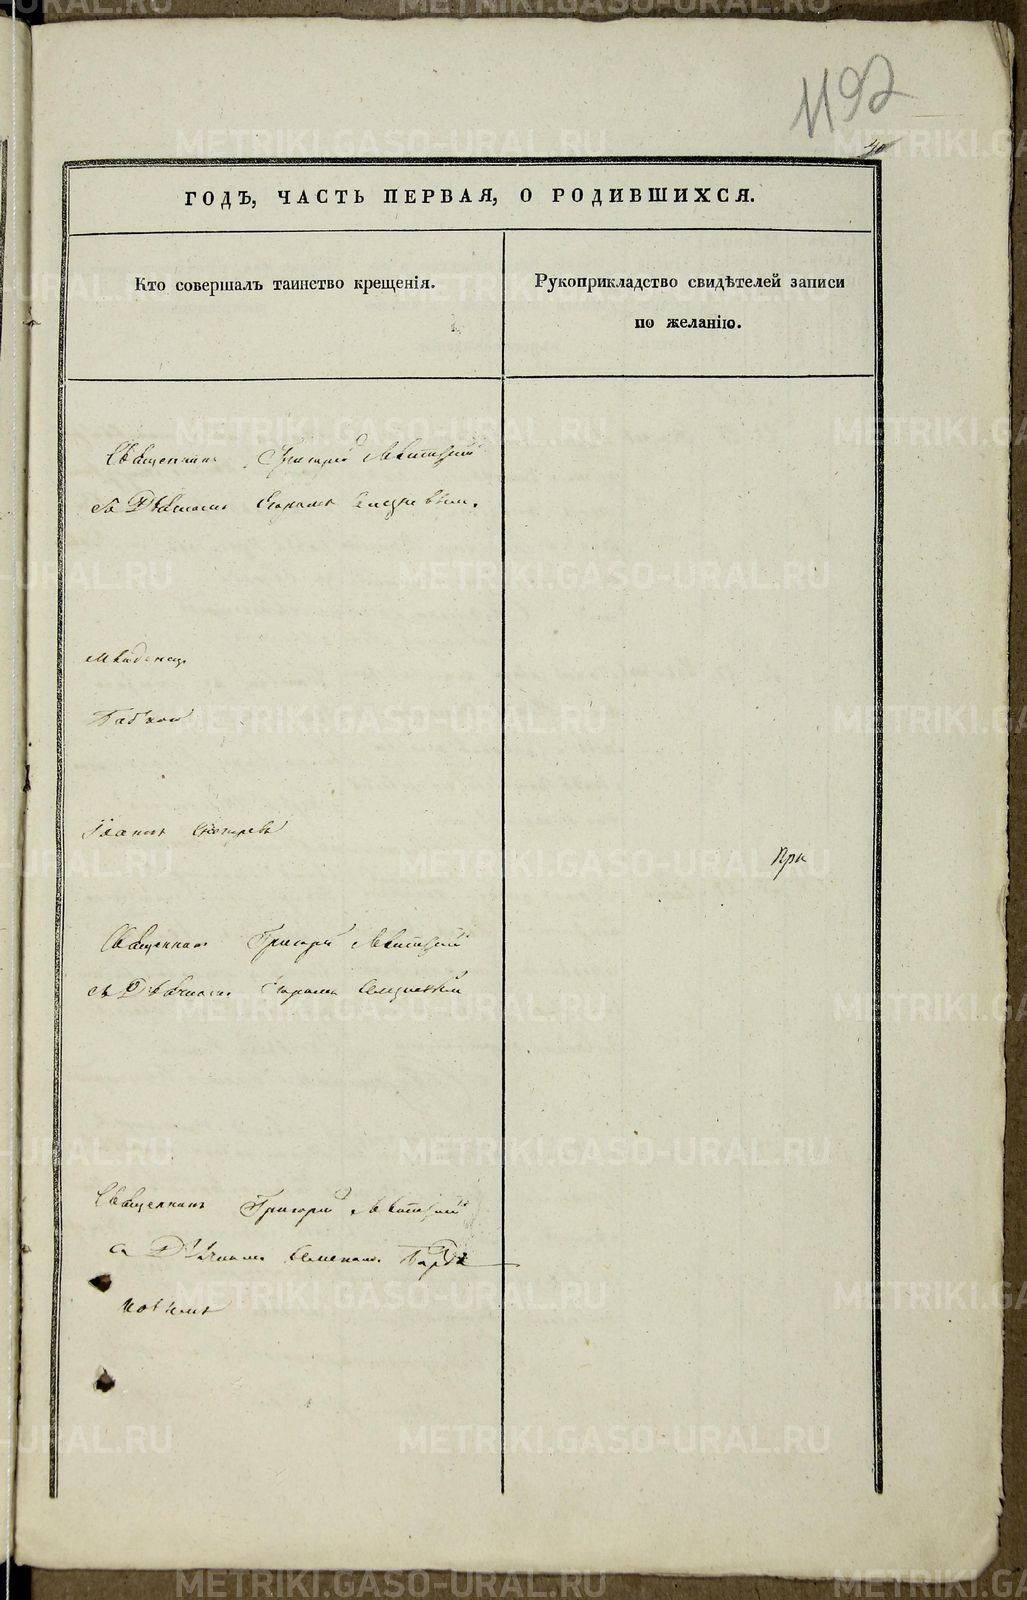 1192
ГОДЪ, ЧАСТЬ ПЕРВАЯ, О РОДИВШИХСЯ.
Кто совершалъ таинство крещенія.
Рукоприкладство свидѣтелей записи
по желанію.
Священникъ Григорій Левитскій
съ Дьячкомъ Егоромъ
Младенец
Бабкой
При
Священникъ Григорій Левитскій
съ Дьячкомъ Егоромъ
Священникъ Григорій Левитскій
с Дьячкомъ Семеномъ
METRIKI.GASO-URAL.RU